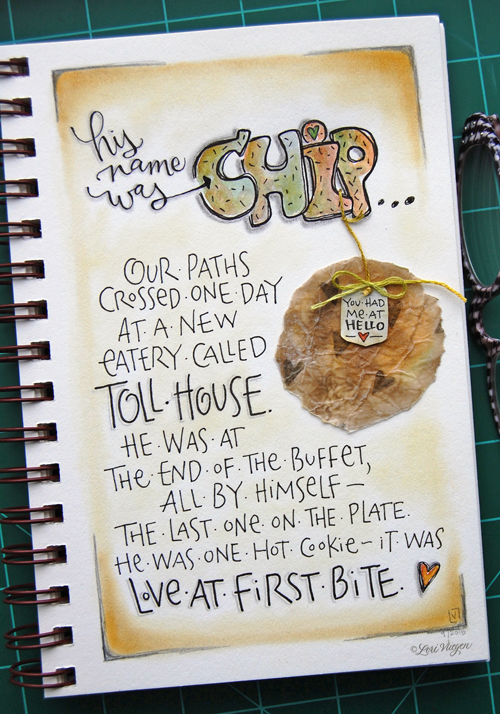 his
name
was
CHIP...
OUR·PATHS
CROSSED·ONE·DAY
AT·A·NEW
EATERY·CALLED
TOLL·HOUSE.
HE·WAS·AT
THE·END·OF·THE·BUFFET,
ALL·BY·HIMSELF—
THE·LAST·ONE·ON·THE·PLATE.
HE·WAS·ONE·HOT·COOKIE—IT·WAS
LOVE·AT·FIRST·BITE.
YOU·HAD
ME·AT
HELLO
©Lori Vliegen